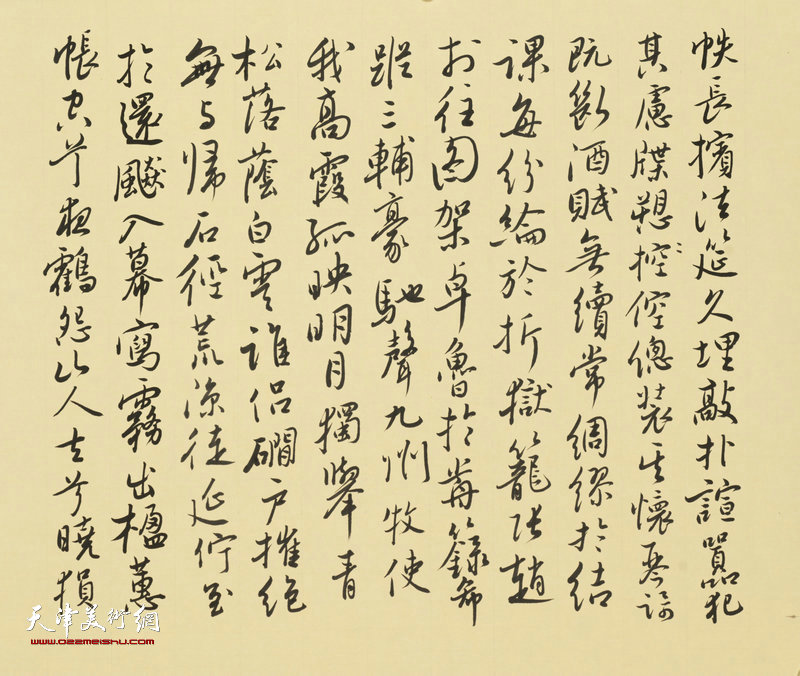 帙長擯法筵久埋敲扑諠囂犯
其慮牒愬控倥傯裝其懷琴謌
既斷酒賦無續常綢繆於結
課每紛綸於折獄籠張趙
於往圖架卓魯於前籙希
蹤三輔豪馳聲九州牧使
我高霞孤映明月獨舉青
松落蔭白雲誰侶磵戶摧絕
無与歸石徑荒涼徒延佇至
於還飆入幕寫霧出楹蕙
帳空兮夜鶴怨山人去兮曉猿
天津美術網
www.022meishu.com